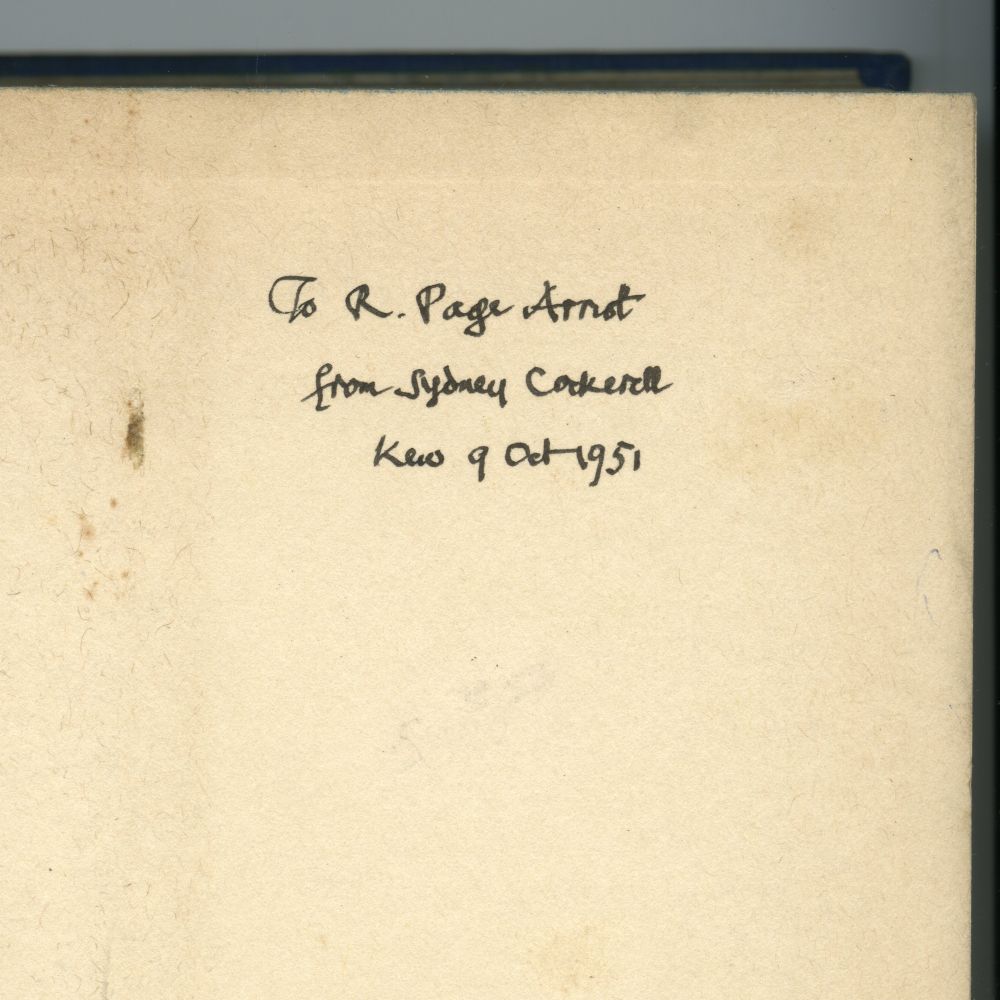 To R. Page Arnot
from Sydney Cockerell
Kew 9 Oct 1951